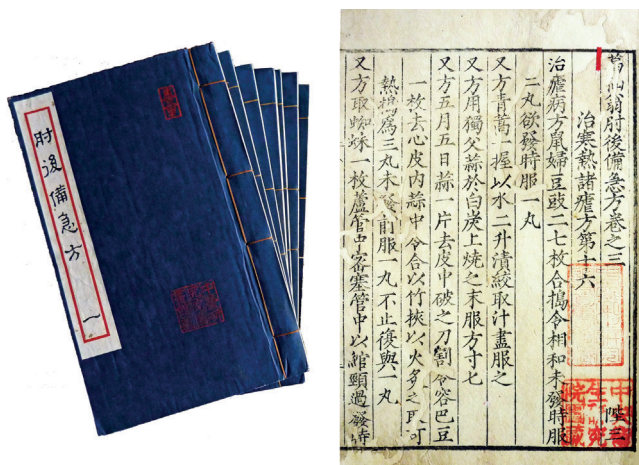 肘後備急方 一
葛仙翁肘後備急方卷之三 陛三
治寒熱諸瘧方第十六
治瘧病方鼠婦豆豉二七枚合搗令相和未發時服
二丸欲發時服一丸
又方青蒿一握以水二升漬絞取汁盡服之
又方用獨父蒜於白炭上燒之末服方寸七
又方五月五日蒜一片去皮中破之刀割令容巴豆
一枚去心皮内蒜中令合以竹挾以火炙之取可
熱搗爲三丸未發前服一丸不止復與一丸
又方取蜘蛛一枚蘆管中密塞管中以綰頸過發時